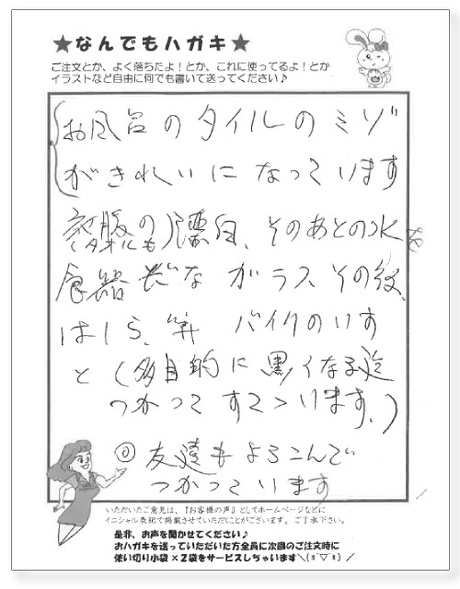 ★なんでもハガキ★
ご注文とか、よく落ちたよ！とか、これに使ってるよ！とか
イラストなど自由に何でも書いて送ってください♪
お風呂のタイルのミゾ
がきれいになっています
衣服の漂白、そのあとの水を
(タオルにも)
食器だな ガラス その後、
はしら、 バイクのいす
と (多目的に黒くなる迄
つかって すてています。)
◎ 友達もよろこんで
つかっています
いただいたご意見は、『お客様の声』としてホームページなどに
イニシャル表記で掲載させていただくことがございます。ご了承下さい。
是非、お声を聞かせてください♪
おハガキを送っていただいた方全員に次回のご注文時に
使い切り小袋×２袋をサービスしちゃいます＼(*￣▽￣*)／